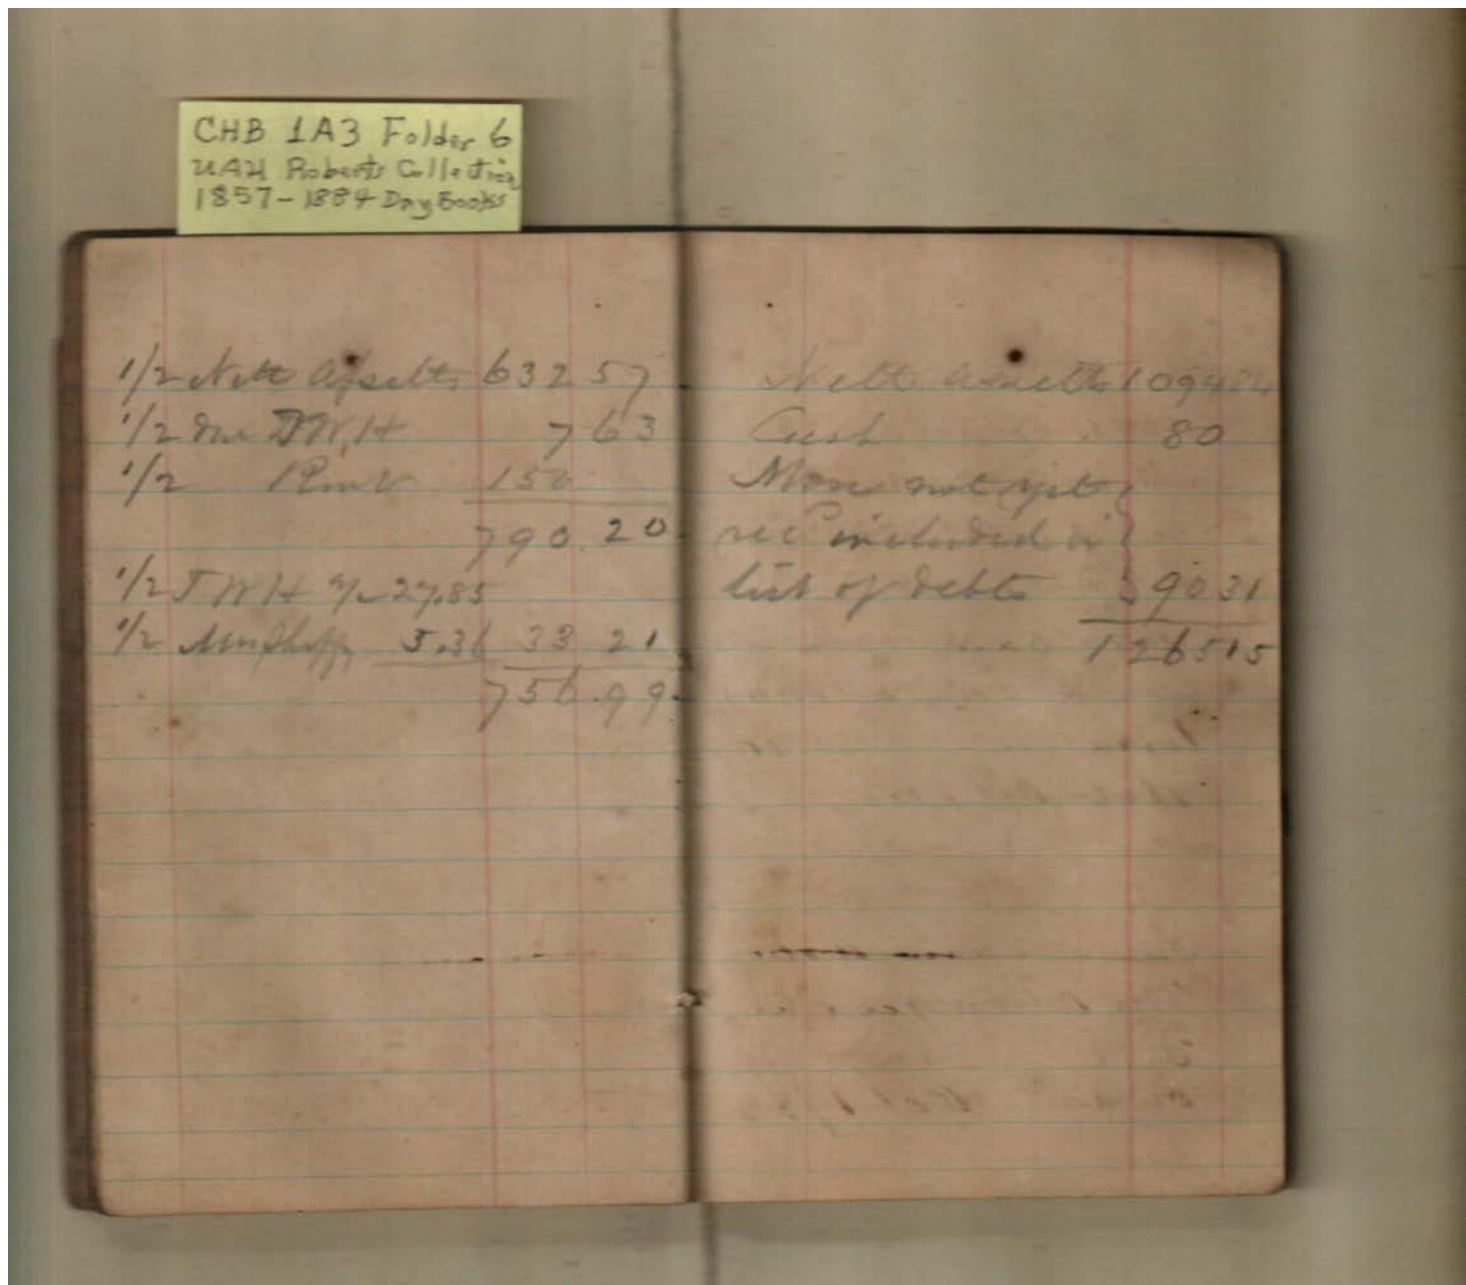 CHB 1A3 Folder 6
UAH Roberts Collection
1857-1884 Day Books
1/2 Nett Assetts 632 57
1/2 due J W. H 7 63
1/2 150
790.20
1/2 J W H a/c 27.85
1/2 5.36 33 21
756.99
Nett Assetts 1094 84
Cash 80
More not yet
rec included in
list of debts 90 31
1265 15